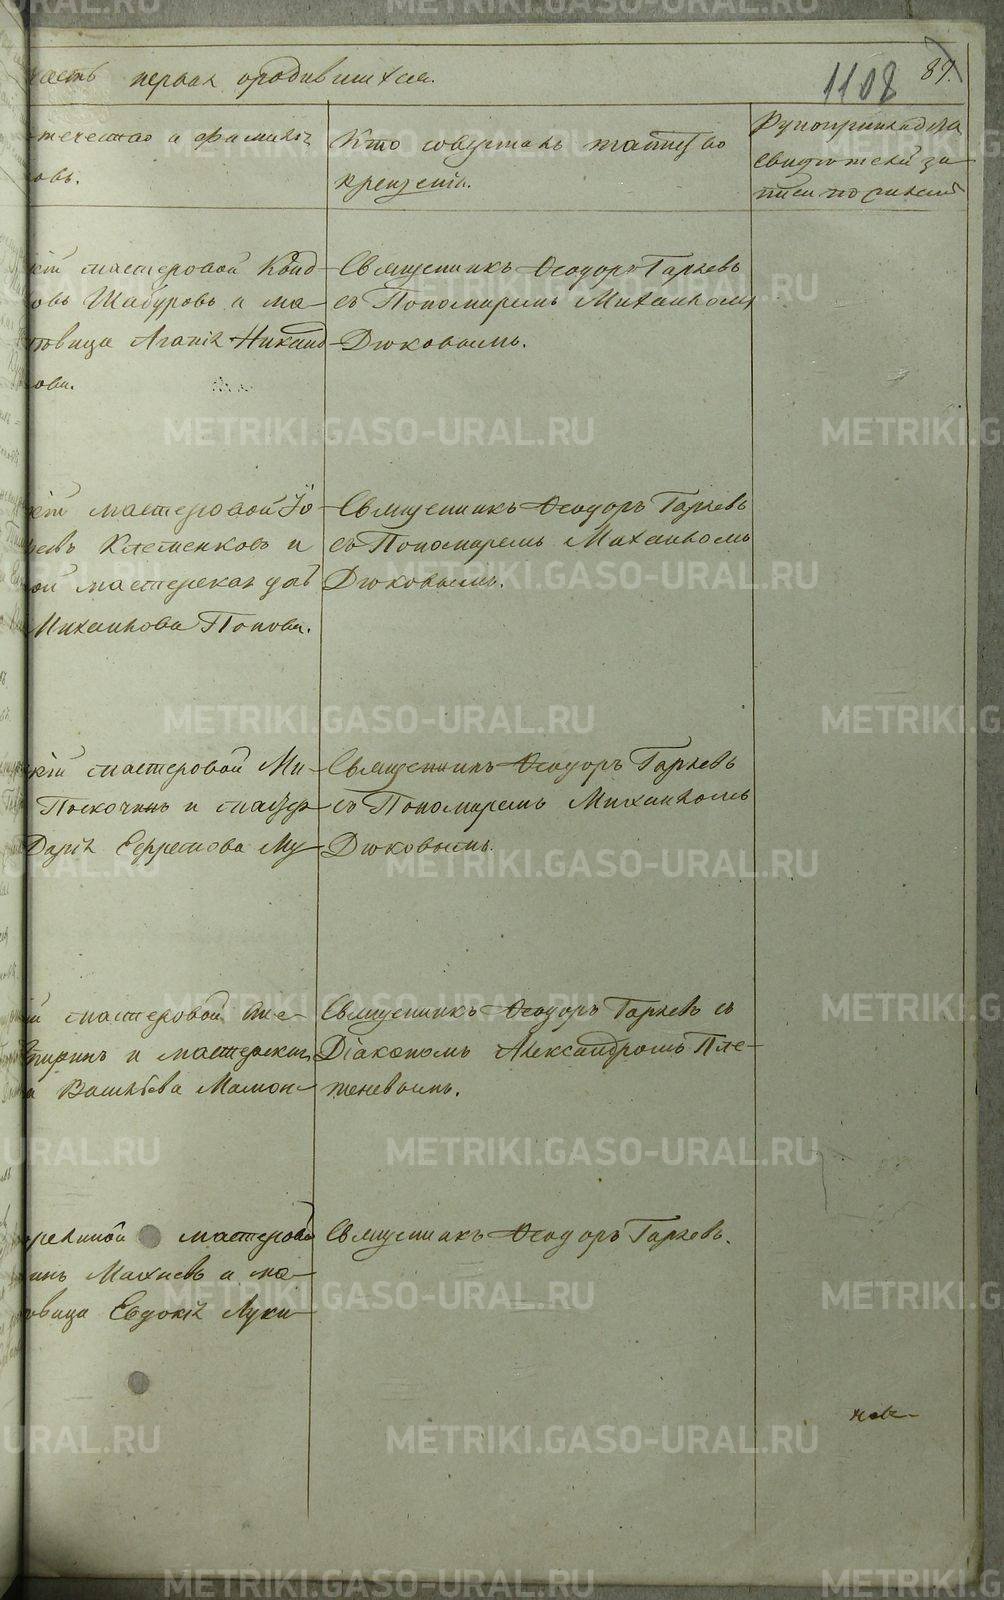 часть первая о родившихся.
1108
87.
отечество и фамилія
овъ.
Кто совершалъ таинство
крещенія.
Рукоприкладства
свидѣтелей за-
писи по желанію
кій мастеровой Конд-
овъ Шабуровъ и ма-
товица Агапія Никанд-
ова.
Священникъ Ѳеодоръ Гаряевъ
съ Пономаремъ Михаиломъ
Дюковымъ.
кій мастеровой
Клетенковъ и
ой мастерская
Михаилова Попова.
Священникъ Ѳеодоръ Гаряевъ
съ Пономаремъ Михаиломъ
Дюковымъ.
кій мастеровой Ми-
Поскочинъ и
Дарія Ефремова Му-
Священникъ Ѳеодоръ Гаряевъ
съ Пономаремъ Михаиломъ
Дюковымъ.
й мастеровой Але-
и мастерская
а Васильева Мамон-
Священникъ Ѳеодоръ Гаряевъ съ
Діакономъ Александромъ Пле-
теневымъ.
мастеровой
инъ Махневъ и ма-
овица Евдокія Луки-
Священникъ Ѳеодоръ Гаряевъ.
METRIKI.GASO-URAL.RU